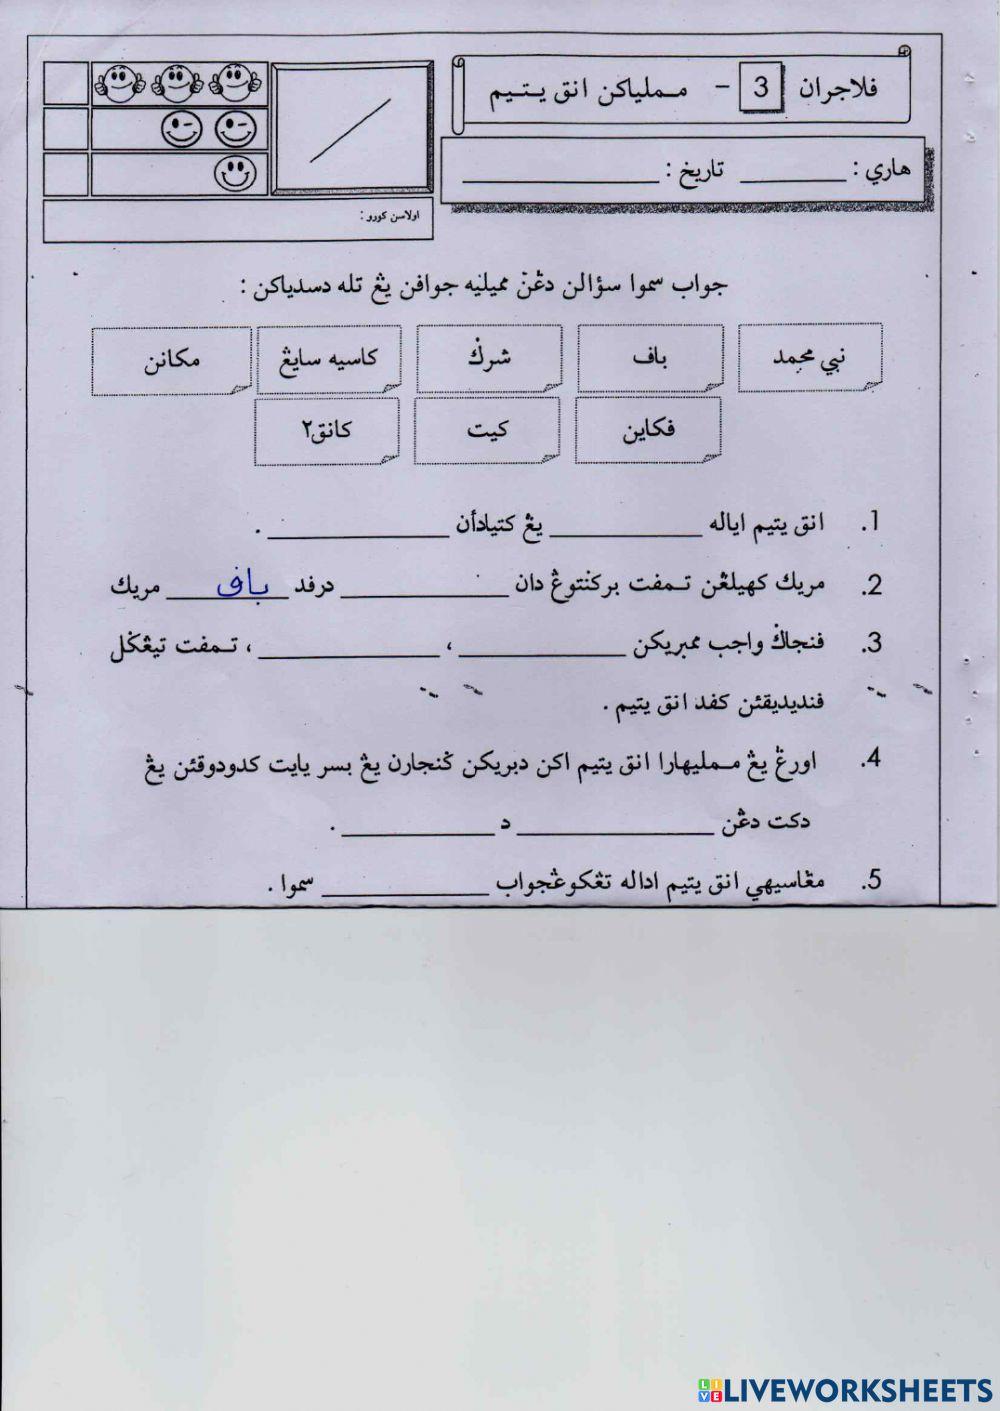 فلاجران 3 - مملياكن انق يتيم
هاري : ________ تاريخ : ________
اولاسن كورو :
جواب سموا سؤالن دڠن مميليه جوافن يڠ تله دسدياكن :
نبي محمد
باف
شرݢ
كاسيه سايڠ
مكانن
فكاين
كيت
كانق٢
1. انق يتيم اياله ________ يڠ كتيادأن ________ .
2. مريك كهيلڠن تمفت بركنتوڠ دان ________ درفد باف مريك
3. فنجاݢ واجب ممبريكن ________ ، ________ ، تمفت تيڠݢل
فنديديقئن كفد انق يتيم .
4. اورڠ يڠ ممليهارا انق يتيم اكن دبريكن ݢنجارن يڠ بسر يايت كدودوقئن يڠ
دكت دڠن ________ د ________ .
5. مڠاسيهي انق يتيم اداله تڠكوڠجواب ________ سموا .
LIVEWORKSHEETS